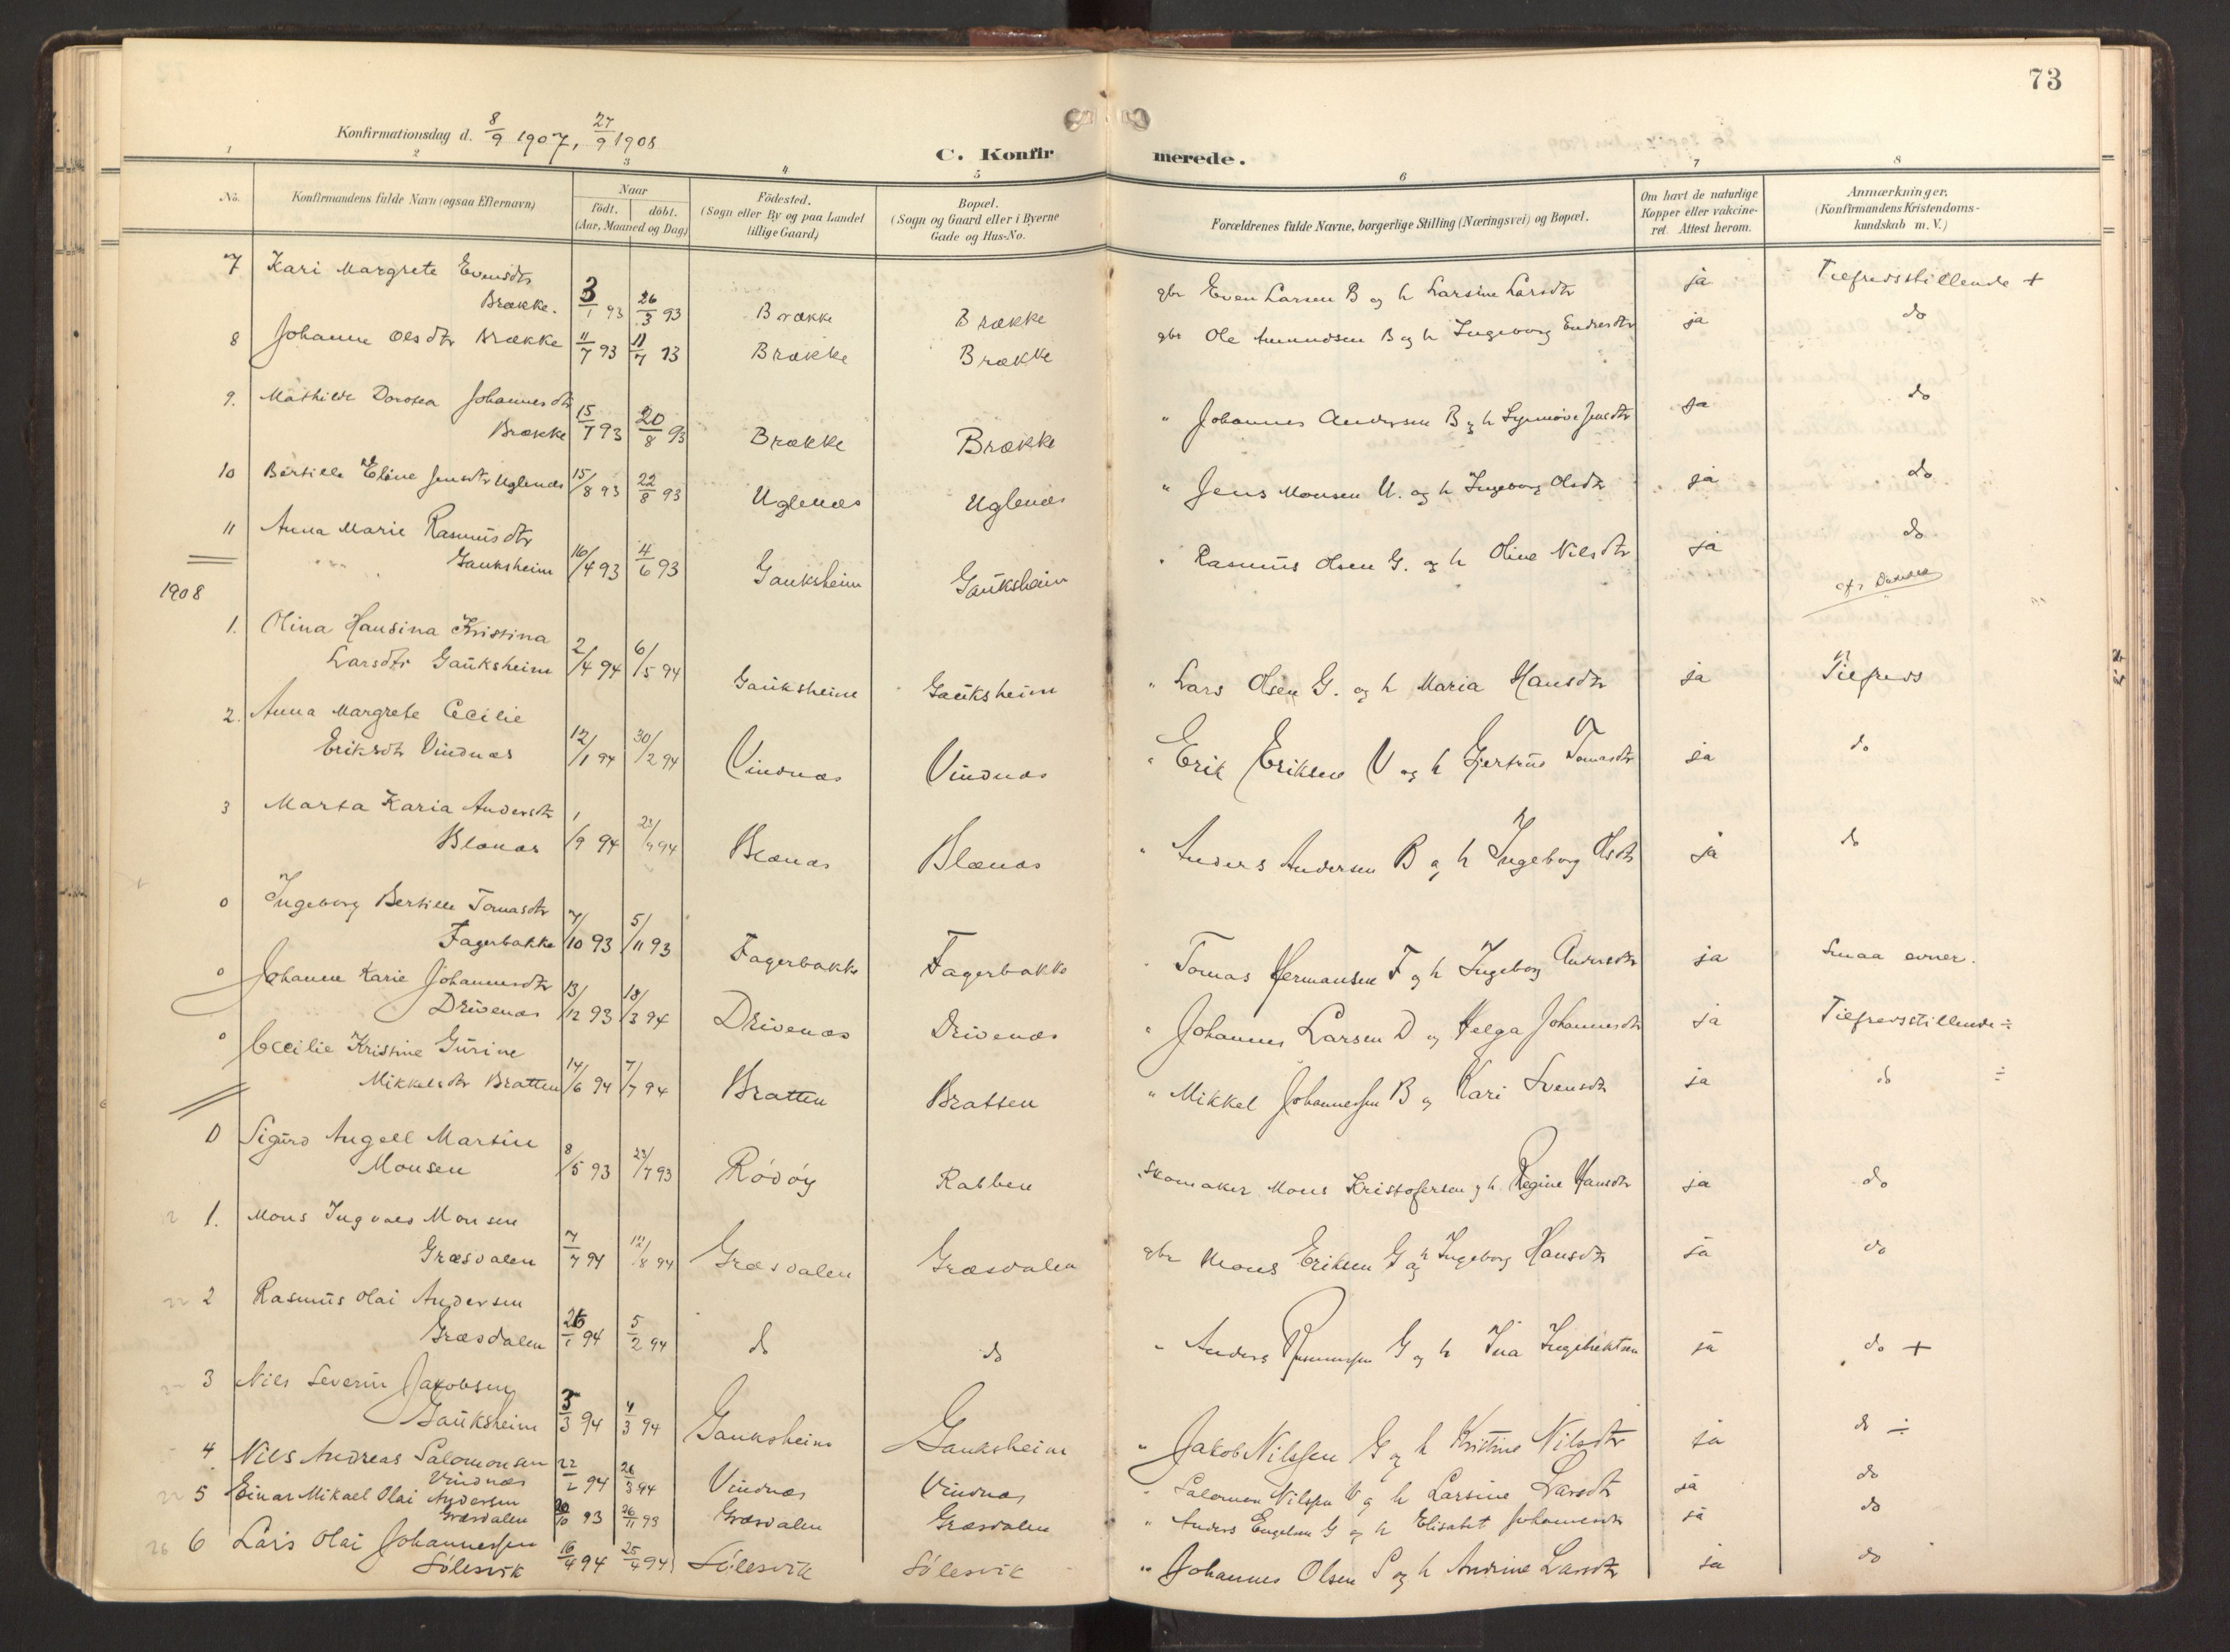 73
Konfirmationsdag d. 8/9 1907, 27/9 1908
C. Konfirmerede.
1 2 3 4 5 6 7 8
No.
Konfirmandens fulde Navn (ogsaa Efternavn)
Naar
født. døbt.
(Aar, Maaned og Dag)
Födested.
(Sogn eller By og paa Landet
tillige Gaard)
Bopæl.
(Sogn og Gaard eller i Byerne
Gade og Hus-No.
Forældrenes fulde Navne, borgerlige Stilling (Næringsvei) og Bopæl.
Om havt de naturlige
Kopper eller vakcine-
ret. Attest herom.
Anmærkninger.
(Konfirmandens Kristendoms-
kundskab m. V.)
7 Kari Margrete Evensdtr
Brække. 3/1 93 26/3 93 Brække Brække gbr Even Larsen B og h Larsine Larsdtr ja Tilfredsstillende +
8 Johanne Olsdtr Brække 11/7 93 Brække Brække gbr Ole Amundsen B og h Ingeborg Endresdtr ja do
9. Mathilde Dorotea Johannesdtr
Brække 15/7 93 20/8 93 Brække Brække " Johannes Andersen B og h Synnøve Jensdtr ja do
10 Bertille Eline Jensdtr Uglenæs 15/8 93 22/8 93 Uglenæs Uglenæs " Jens Monsen U. og h Ingeborg Olsdtr ja do
11 Anna Marie Rasmusdtr
Gauksheim 16/4 93 4/6 93 Gauksheim Gauksheim " Rasmus Olsen G. og h Oline Nilsdtr ja do
1908
1. Olina Hansina Kristina
Larsdtr Gauksheim 2/4 94 6/5 94 Gauksheim Gauksheim " Lars Olsen G. og h Maria Hansdtr ja Tilfreds
2. Anna Margrete Cecilie
Eriksdtr Vindnæs 12/1 94 30/2 94 Vindnæs Vindnæs " Erik Eriksen V og h Gjertrud Tomasdtr ja do
3 Marta Karia Andersdtr
Blænæs 1/9 94 23/9 94 Blænæs Blænæs " Anders Andersen B og h Ingeborg Olsdtr ja do
0 Ingeborg Bertille Tomasdtr
Fagerbakke 7/10 93 5/11 93 Fagerbakke Fagerbakke " Tomas Hermansen F og h Ingeborg Andersdtr ja Smaa evner.
0 Johanne Karie Johannesdtr
Drivenæs 13/12 93 18/3 94 Drivenæs Drivenæs " Johannes Larsen D og Helga Johannesdtr ja Tilfredsstillende ÷
0 Cecilie Kristine Gurine
Mikkelsdtr Bratten 14/6 94 7/7 94 Bratten Bratten " Mikkel Johannessen B og Kari Svensdtr ja do ÷
0 Sigurd Angell Martin
Monsen 8/5 93 23/7 93 Rödöy Rabben Skomaker Mons Kristofersen og h. Regine Hansdtr ja do
1. Mons Ingvald Monsen
Græsdalen 7/7 94 12/8 94 Græsdalen Græsdalen gbr Mons Eriksen G og h Ingeborg Hansdtr ja do
2 Rasmus Olai Andersen
Græsdalen 26/1 94 5/2 94 do do " Anders Rasmussen G og h Ina Ingebriktsen ja do +
3 Nils Severin Jakobsen
Gauksheim 5/3 94 4/3 94 Gauksheim Gauksheim " Jakob Nilssen G og h Kristine Nilsdtr ja do ÷
4. Nils Andreas Salomonsen
Vindnæs 22/2 94 26/3 94 Vindnæs Vindnæs " Salomon Nilssen V og h Larsine Larsdtr ja do
5 Einar Mikael Olai Andersen
Græsdalen 20/10 93 26/11 93 Græsdalen Græsdalen " Anders Engelsen G og h Elisabet Johannesdtr ja do
6 Lars Olai Johannessen
Sölesvik 16/4 94 25/4 94 Sölesvik Sölesvik " Johannes Olsen S og h Andrine Larsdtr ja do